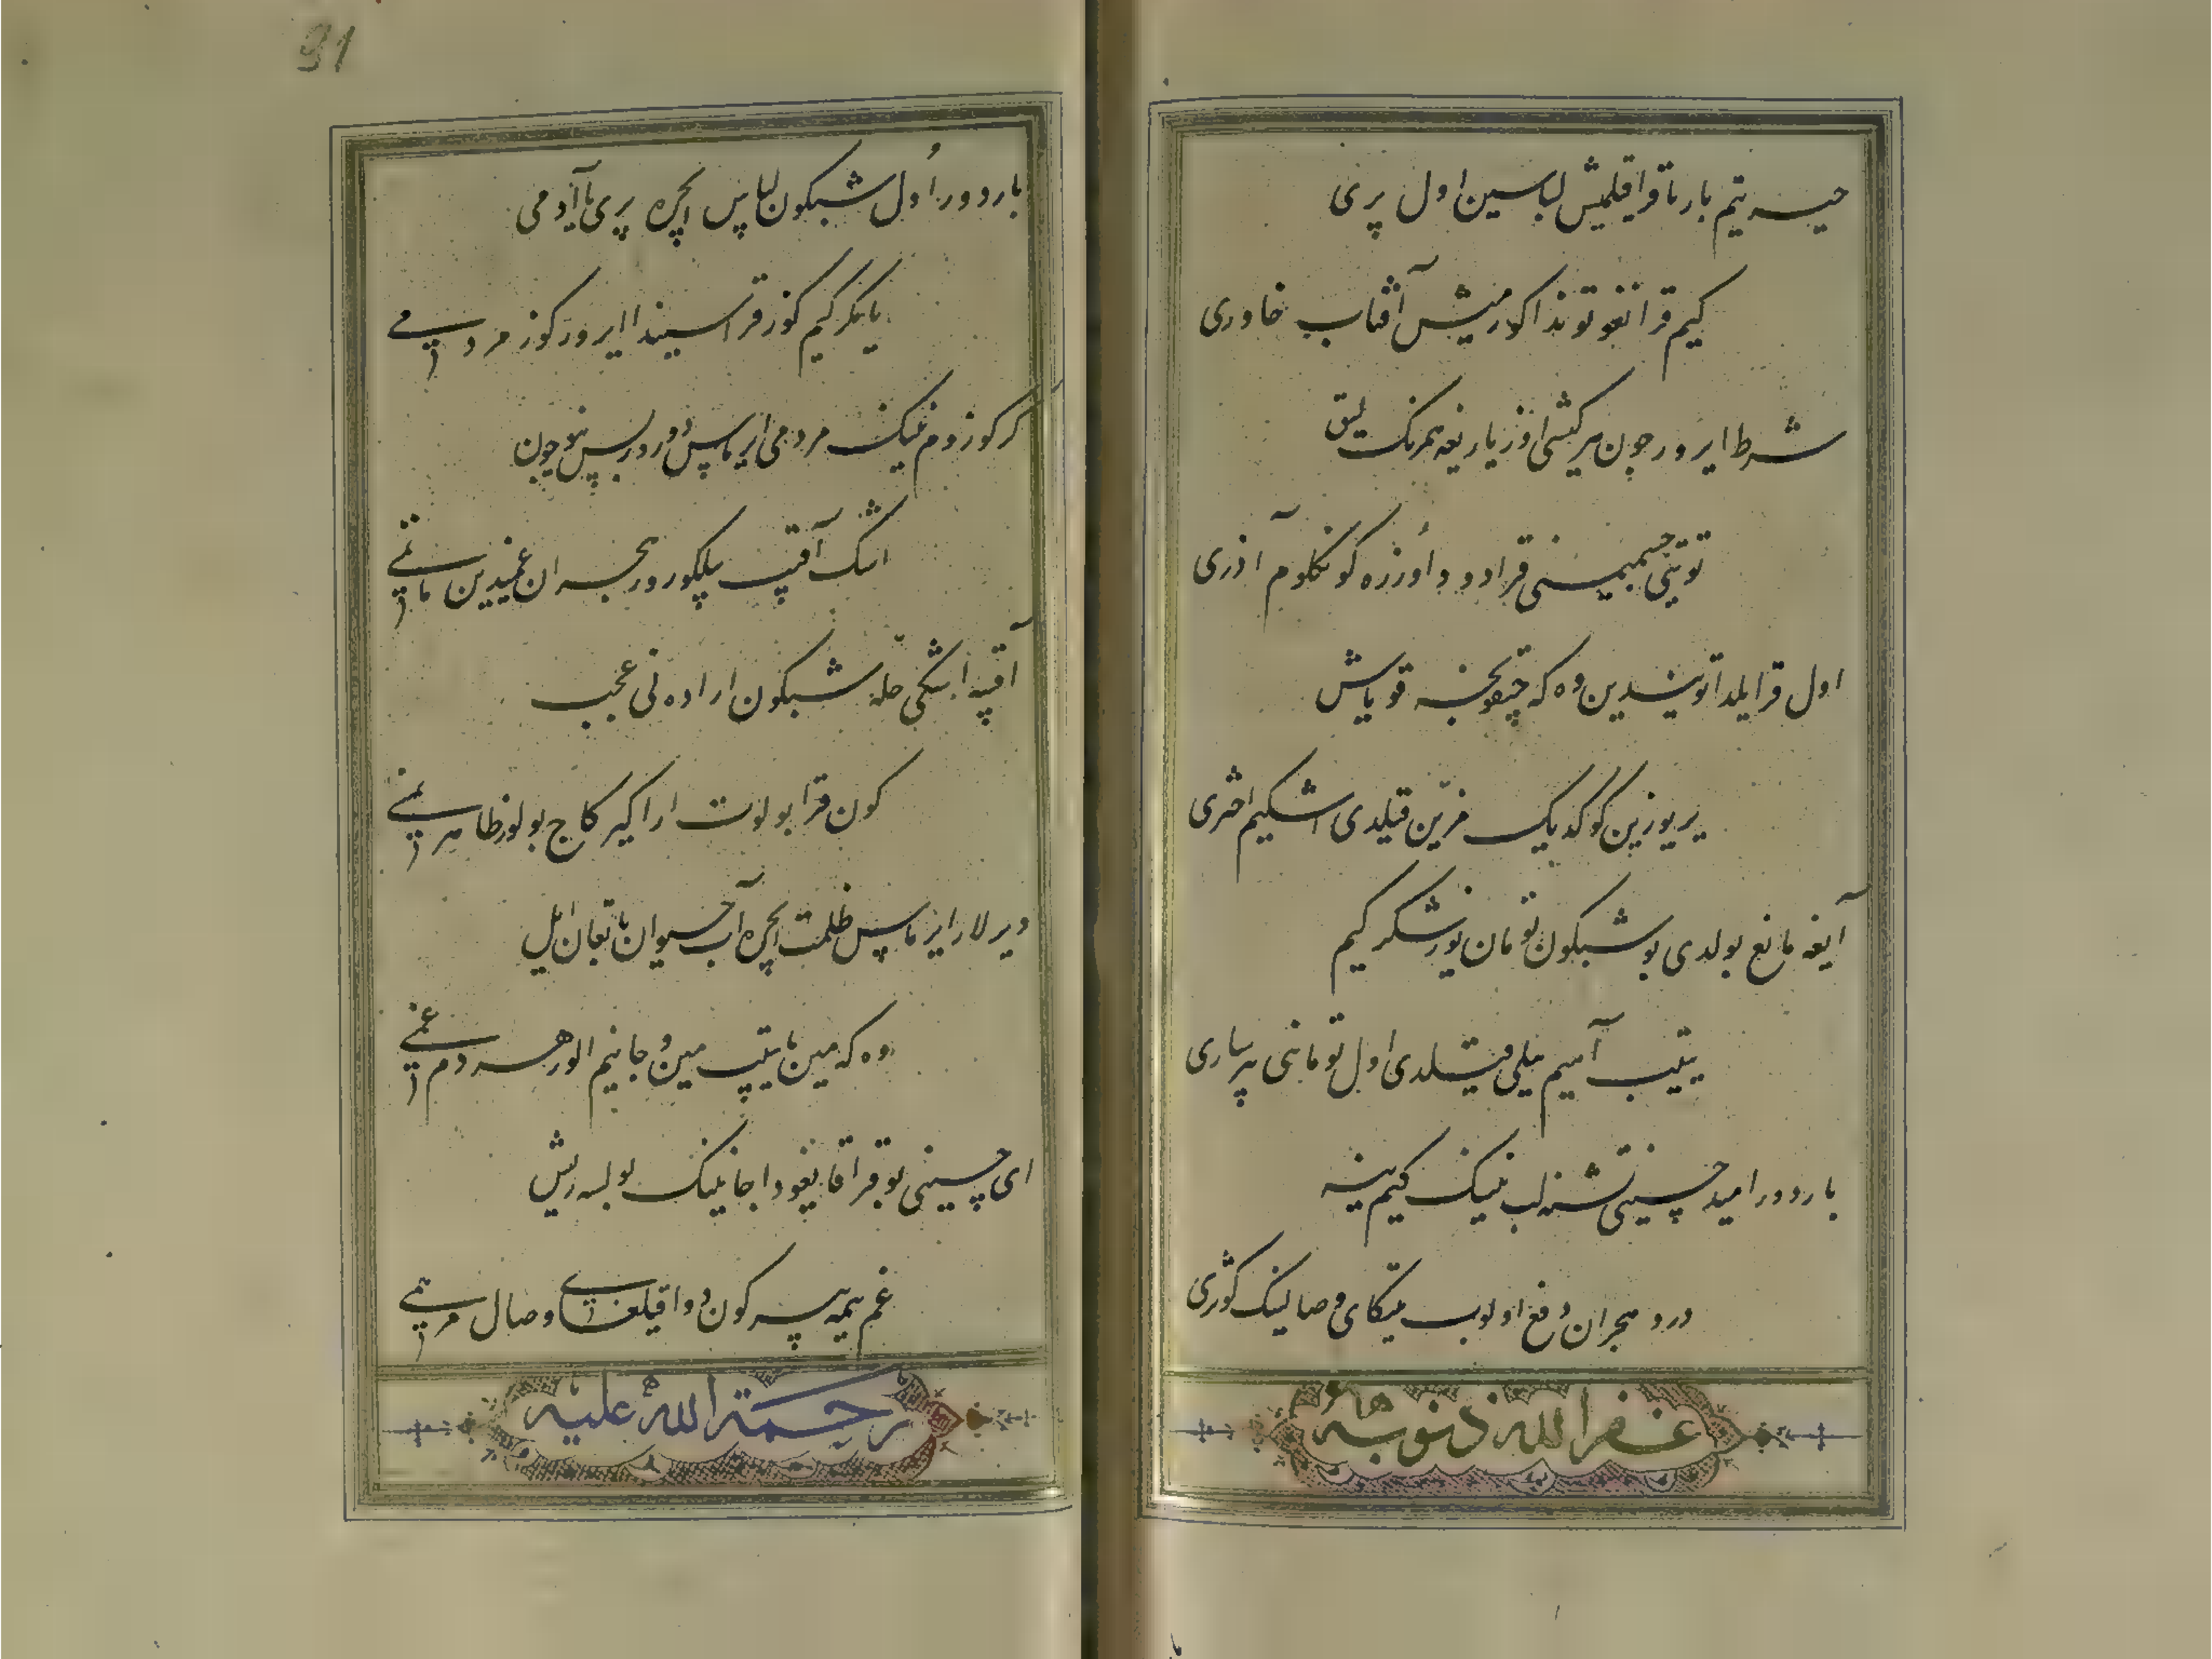 حیسه یتم بارنا قرا قلمیش لباسین اول پری
کیم قرانغو توندا کورمیش آفتاب خاوری
شرط ایرور چون هر کیشی اوز یاریغه همرنک لیق
توتتی جسمیمنی قرا دود اورزه کونکلوم آذری
اول قرا یلدا توشیدین وه که چیقونچه قویاش
یر یوزین کوکدیک مزین قیلدی اشکیم اختری
آیغه مانع بولدی بو شبکون تومان یوز شکر کیم
یتیب آهیم ییلی قیلدی اول توماننی بر ساری
باردور امید حسینی تشنه لب نینک کیم ینه
درد هجران دفع اولوب ییتکای وصالینک کوثری
غفر الله ذنوبه
91
باردور اول شبکون لباس ایچره پری یا آدمی
یا مکر کیم کوز قراسیندا ایرور کوز مردمی
کر کوزوم نینک مردمی ایرماس دورور بس نیچون
اشک آقیب یلکورور هجران غمیدین ماتمی
آقیه اشکی حله شبکون ارا ده نی عجب
کون قرا بولوت ارا کیرکاج بولور ظاهر نمی
دیرلار ایرماس ظلمت ایچره آب حیوان تاپقان ایل
وه که مین تاپیب مین و جانیم الور هر دم غمی
ای حسینی بو قرا قایغودا جانینک بولسه ریش
غم ییمه بیر کون دوا قیلغای وصالی مرهمی
رحمة الله علیه